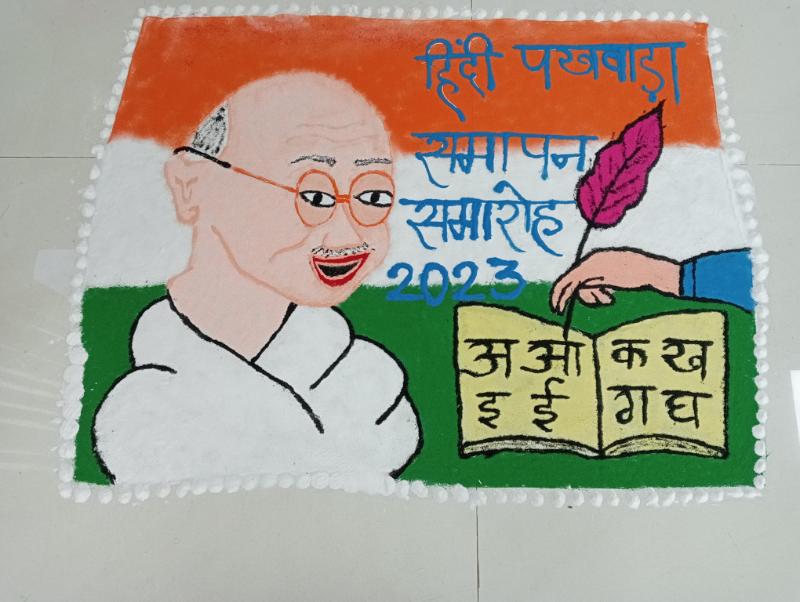 हिंदी पखवाड़ा
समापन
समारोह
2023
अ आ
इ ई
क ख
ग घ